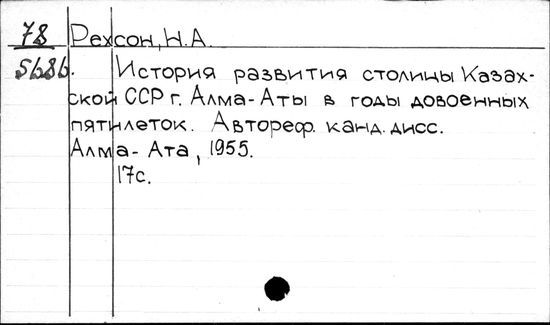 78 Рехсон, Н.А.
5686. История развития столицы Казах-
ской ССР г. Алма-Аты в годы довоенных
пятилеток. Автореф. канд. дисс.
Алма-Ата, 1955.
17с.